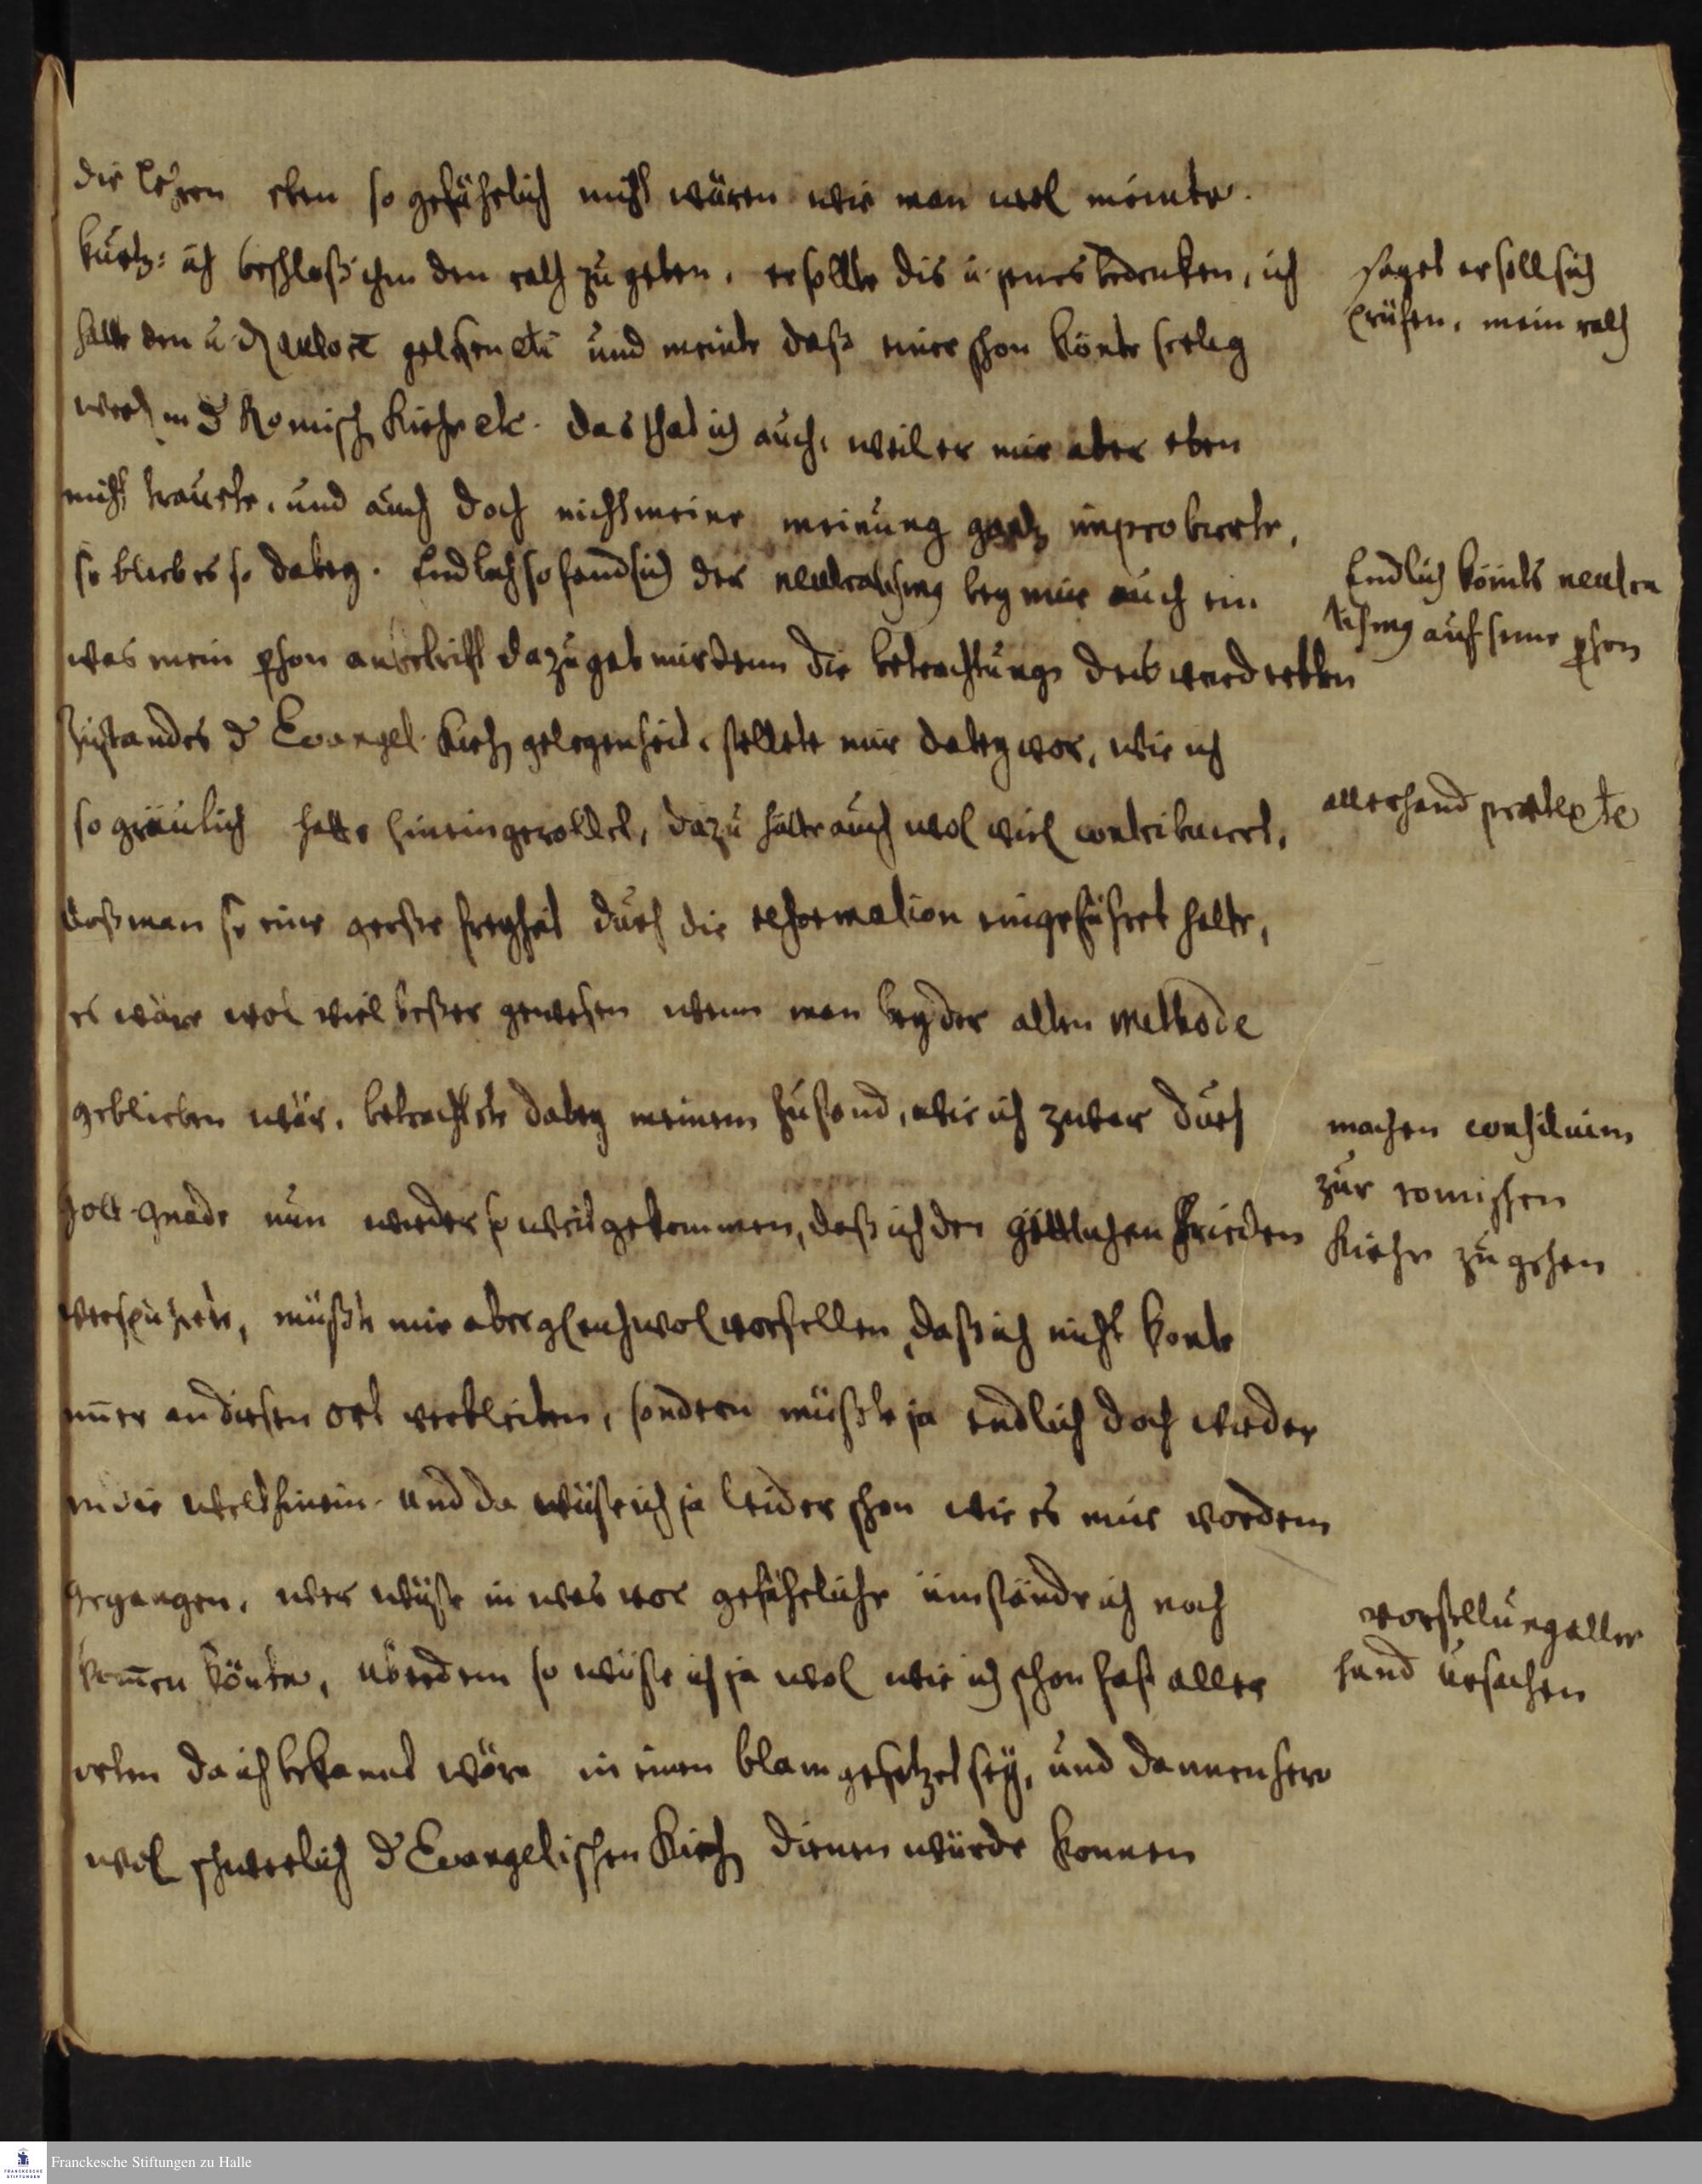 die lehren eben so gefährlich nicht wären wie man wol meinte.
kurtz: ich beschloß ihm den rath zu geben, er sollte dis u. jenes bedenken, ich
hatte den u. autore gelesen etc und meinte daß einer schon könte seelig
werd in d Romisch Kirche etc. das that ich auch, weil er mir aber eben
nicht trauete, und auch doch nicht meine meinung gantz improbierte,
so blieb es so dabey. Endlich so fand sich der neutralismus bey mir auch ein
was mein pson anbetrifft dazu gab mir denn die betrachtunge des verderbten
Zustandes d Evangel. Kirch gelegenheit, stellete mir dabey vor, wie ich
so gräulich hatte hinein gewollet, dazu hätte auch wol viel contribuiert,
daß man so eine große freyheit durch die reformation eingeführet hatte,
es wäre wol viel beßer gewesen wenn man bey der alten methode
geblieben wär, betrachtete dabey meinem Zustand, wie ich zwar durch
Gott. Gnade nun wieder so weit gekommen, daß ich den göttlichen Frieden
verspührete, müßte mir aber gleichwol vorstellen, daß ich nicht konte
im̄er an diesen ort verbleiben, sondern müßte ja endlich doch wieder
in die welt hinein. und da wüste ich ja leider schon wie es mir vordem
gegangen, wer wüste in was vor gefährliche ümstände ich noch
kom̄en könte, überdem so wüste ich ja wol wie ich schon fast aller
orten da ich bekannt wäre in einen blam gesetzet sey, und dannenhero
wol schwerlich d Evangelischen Kirch dienen würde konnen
saget er soll sich
prüfen, mein rath
Endlich kömts neutra
lismus auf seine pson
allerhand prætexte
machen consilium
zur romischen
Kirche zu gehen
vorstellung aller
hand ursachen
Franckesche Stiftungen zu Halle